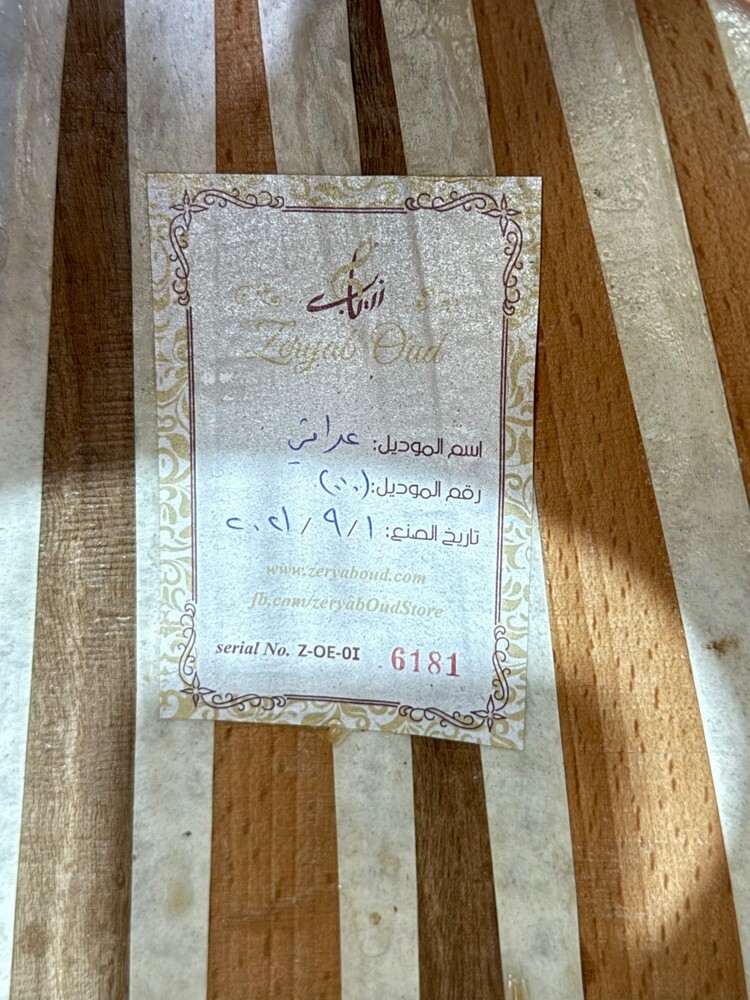 زرياب
Zeryab Oud
اسم الموديل: عراقي
رقم الموديل: (٠٠٠)
تاريخ الصنع: ٢٠٢١ / ٩ / ١
www.zeryaboud.com
fb.com/zeryabOudStore
serial No. Z-OE-0I 6181